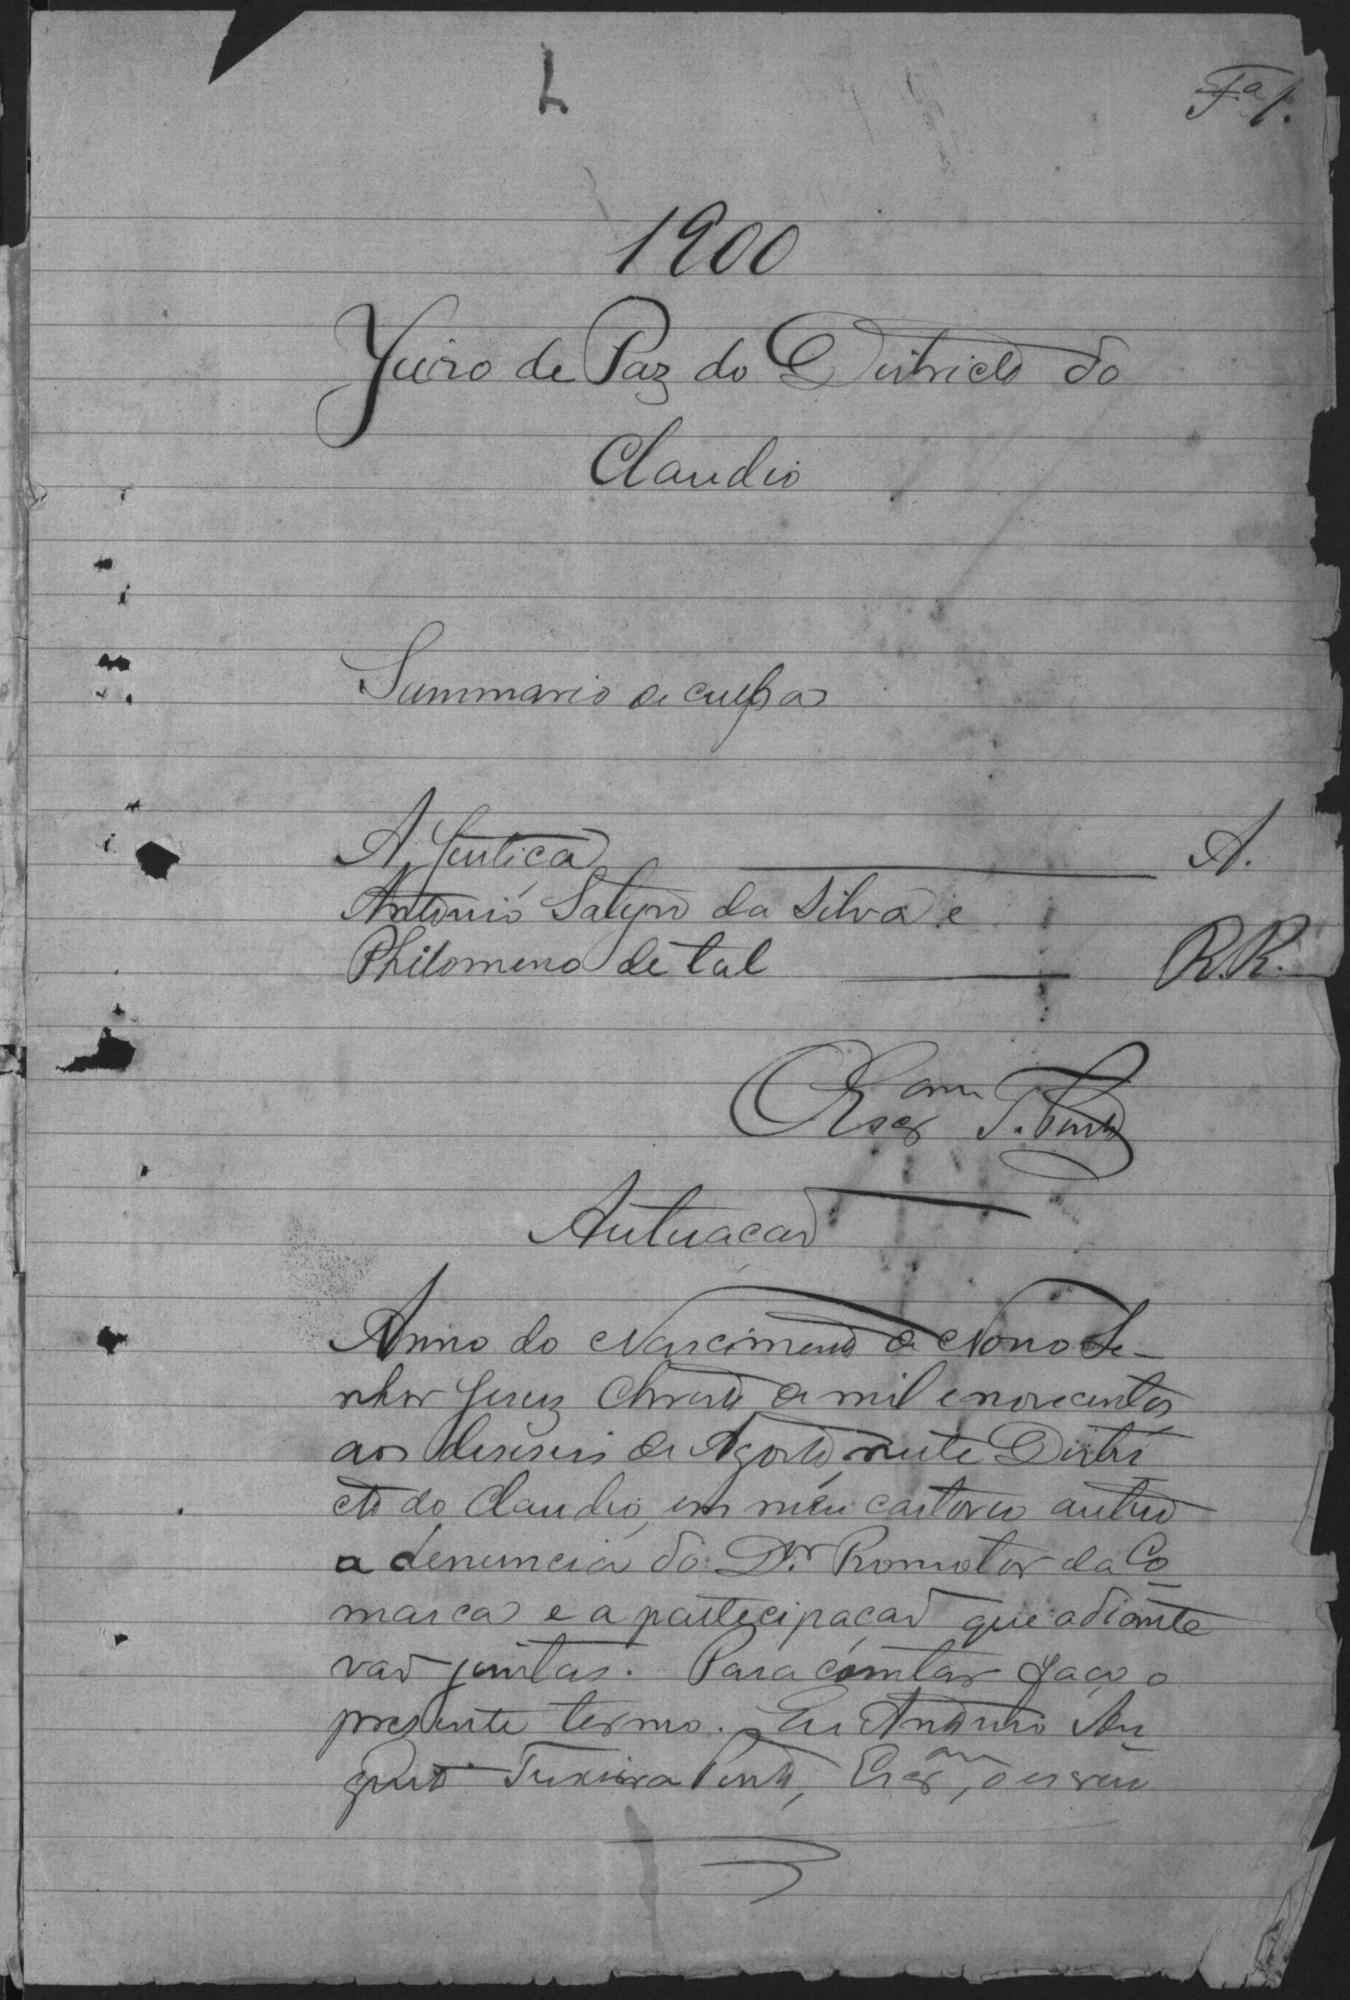 Fª 1.
1900
Juizo de Paz do Districto do
Claudio
Summario de culpa
A Justiça A.
Antonio Satyro da Silva e
Philomeno de tal R.R.
O Escr.am T. Pinto
Autuacaõ
Anno do Nascimento de Nosso Se-
nhor Jesuz Christo de mil e novecentos
aos deseseis de Agosto, neste Distri
cto do Claudio, em meu cartorio autuo
a denuncia do Dr. Promotor da Co
marca e a partecipacaõ que adiante
vaõ juntas. Para constar faço o
presente termo. Eu Antonio Au
gusto Teixeira Pinto, Escr.am, o escrevi